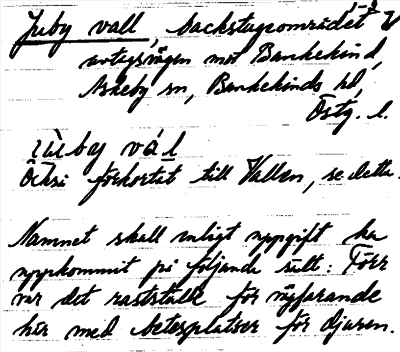 Juby vall, backstugeområdet V
avtagsvägen mot Bankekind,
Askeby sn, Bankekinds hd,
Östg. l.
by vá l
Också förkortat till Vallen, se detta.
Namnet skall enligt uppgift ha
uppkommit på följande sätt: Förr
var det rastställe för vägfarande
här med betesplatser för djuren.